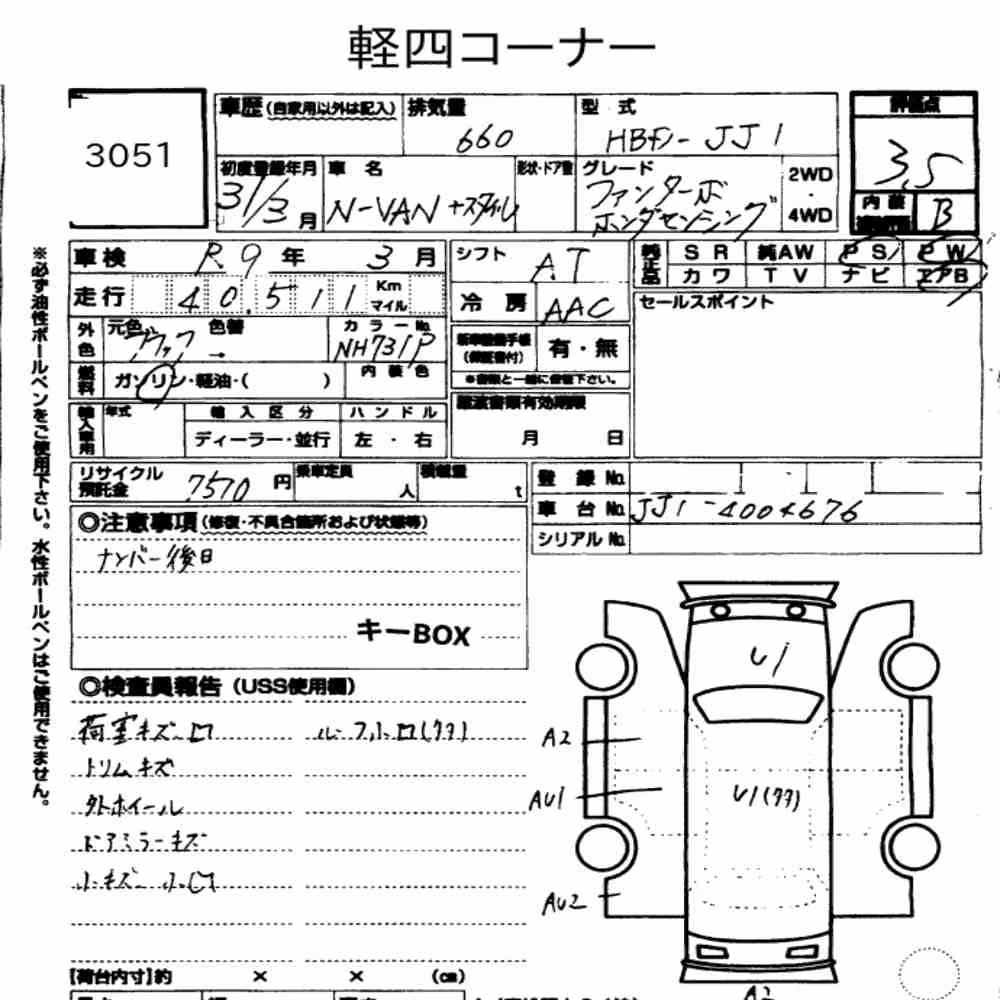 軽四コーナー
3051
車歴 (自家用以外は記入)
排気量
660
型式
HBD-JJ1
評価点
3.5
内装
B
初度登録年月
31/3月
車名
N-VAN +スタイル
形状・ドア数
グレード
ファンターボ
ホンダセンシング
2WD
・
4WD
車検 R.9年 3月
シフト
AT
純正品
SR 純AW PS PW
カワ TV ナビ エアB
走行 40,511 Km マイル
冷房
AAC
セールスポイント
外色
元色 色替
ブラック →
カラーNo.
NH731P
(保証書付)
有・無
※書類と一緒に保管下さい。
燃料
ガソリン・軽油・( )
内装色
輸入車用
年式
輸入区分
ディーラー・並行
ハンドル
左・右
譲渡書類有効期限
月 日
リサイクル預託金 7570円
乗車定員
人
積載量
t
登録No.
車台No. JJ1-4004676
シリアルNo.
◎注意事項 (修復・不具合箇所および状態等)
ナンバー後日
キーBOX
◎検査員報告 (USS使用欄)
荷室キズ凹 ルーフ小凹(タタ)
トリムキズ
外ホイール
ドアミラーキズ
小キズ 小凹
【荷台内寸】約 × × (cm)
※必ず油性ボールペンをご使用下さい。水性ボールペンはご使用できません。
U1
A2
AU1
U1(タタ)
AU2
A2